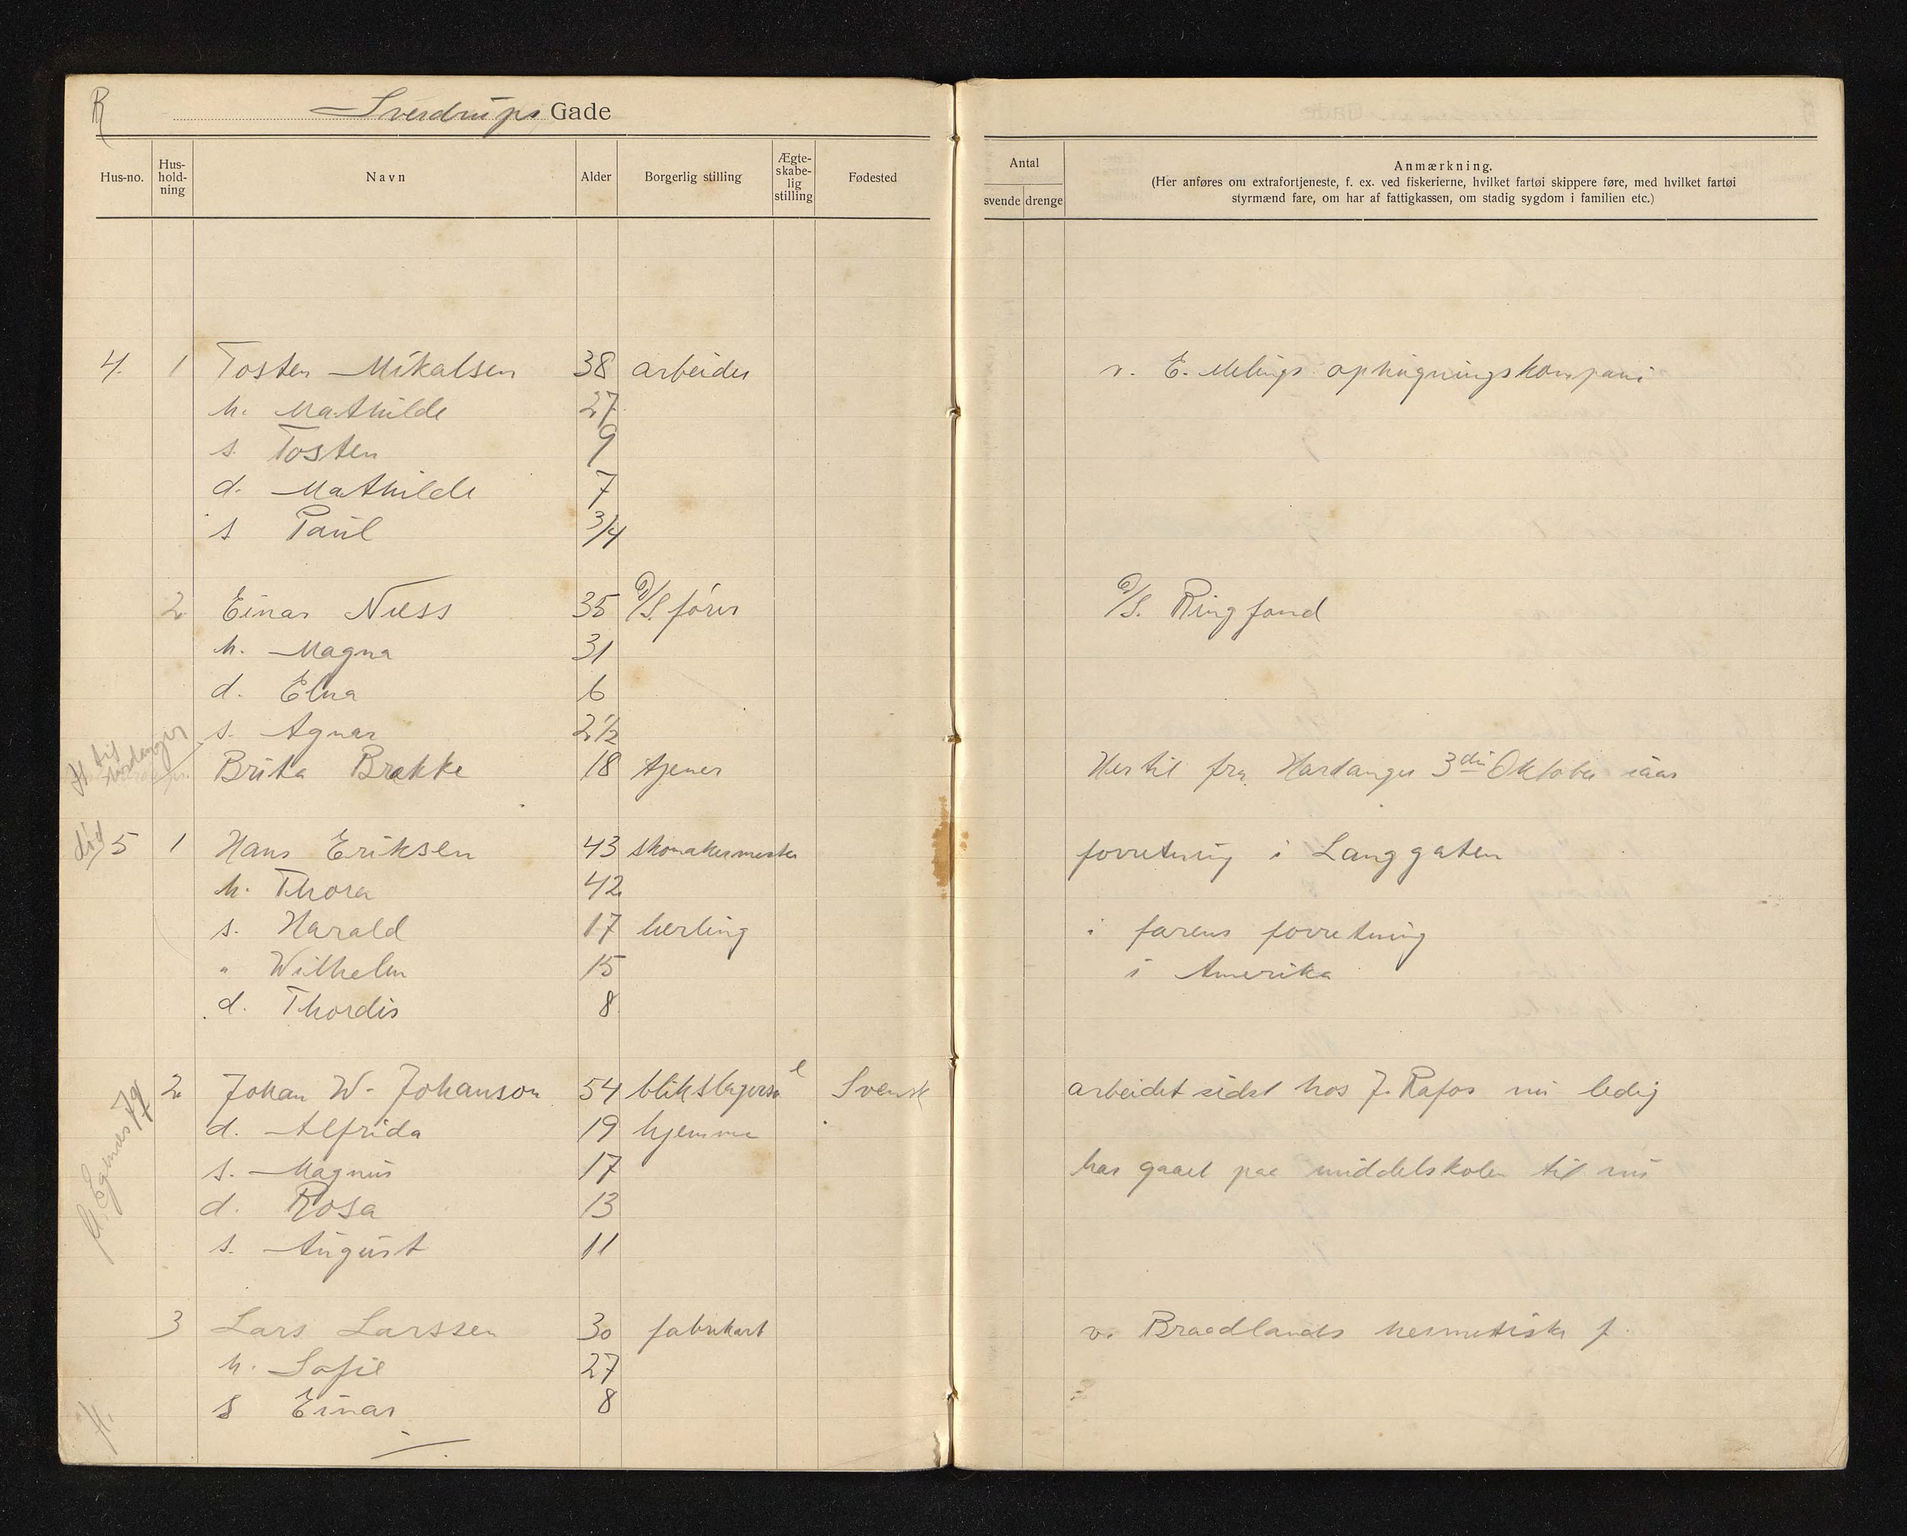 R
Sverdrups Gade
Hus-no. Hus-hold-ning Navn Alder Borgerlig stilling Ægte-skabe-lig stilling Fødested Antal svende drenge Anmærkning.
(Her anføres om extrafortjeneste, f. ex. ved fiskerierne, hvilket fartøi skippere føre, med hvilket fartøi
styrmænd fare, om har af fattigkassen, om stadig sygdom i familien etc.)
4. 1 Tosten Mikalsen 38 arbeider v. E. Melings ophugningskompani
h. Mathilde 27
s. Tosten 9
d. Mathilde 7
s Paul 3/4
2 Einar Næss 35 D/S. fører D/S. Ringfond
h. Magna 31
d. Elna 6
s. Agnar 2 1/2
H til Hardanger Brita Brakke 18 tjener Her til fra Hardanger 3die Oktober iaar
død 5 1 Hans Eriksen 43 skomakermester forretning i Langgaten
h. Thora 42
s. Harald 17 lærling i farens forretning
" Wilhelm 15 i Amerika
d. Thordis 8
2 Johan W. Johanson 54 blikslagersv e Svensk arbeidet sidst hos J. Rafos nu ledig
d. Alfrida 19 hjemme
s. Magnus 17 har gaaet paa middelskolen til nu
d. Rosa 13
s. August 11
3 Lars Larssen 30 fabrikarb v. Braadlands hermetiske f.
h. Sofie 27
H. s Einar 8